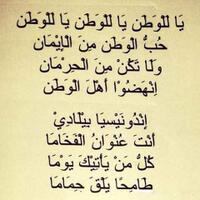 يَا لَلْوَطَن يَا لَلْوَطَن يَا لَلْوَطَن
حُبُّ الْوَطَن مِنَ الْإِيْمَان
وَلَا تَكُنْ مِنَ الْحِرْمَان
اِنْهَضُوْا أَهْلَ الْوَطَن
اِنْدُونَيْسِيَا بِيْلَادِيْ
أَنْتَ عُنْوَانُ الْفَخَامَا
كُلُّ مَنْ يَأْتِيْكَ يَوْمَا
طَامِحًا يَلْقَ حِمَامَا